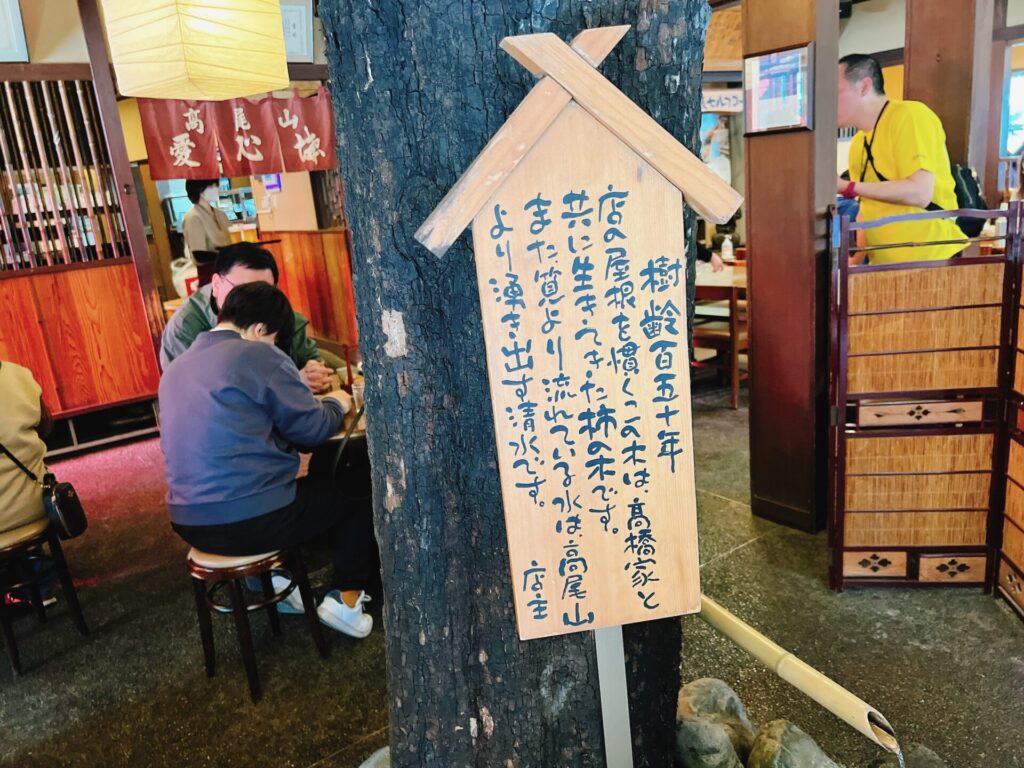 樹齢百五十年
店の屋根を慣くこの木は、髙橋家と
共に生きてきた柿の木です。
また筧より流れている水は、高尾山
より湧き出す清水です。
店主
髙尾山
愛心